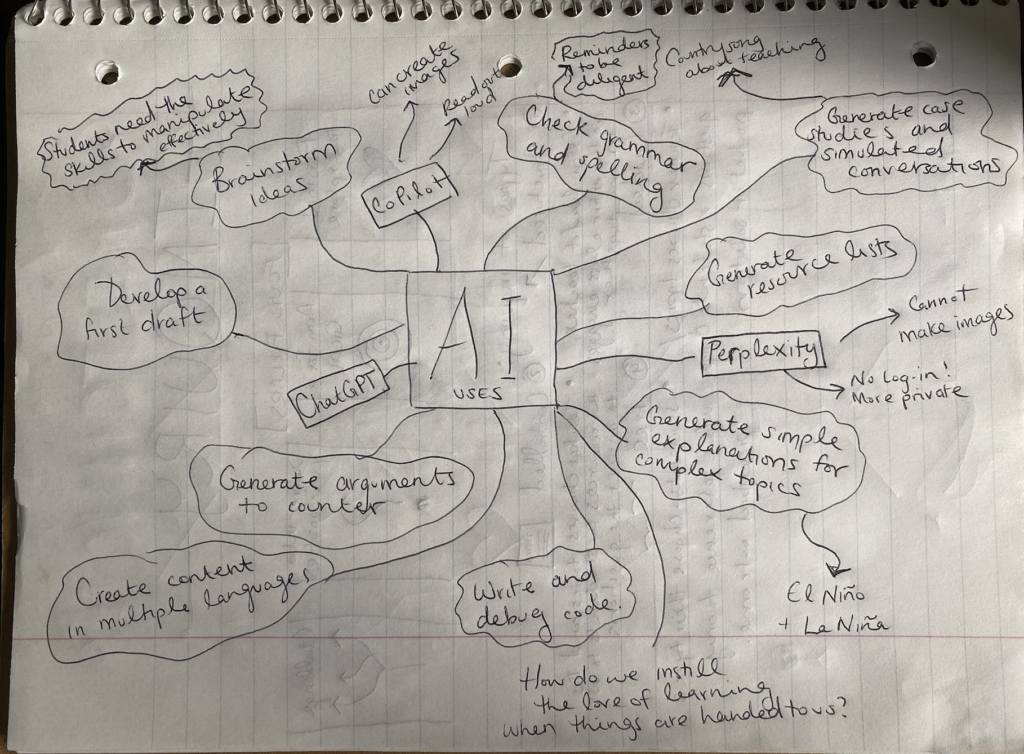 Students need the
skills to manipulate
effectively
Brainstorm
ideas
can create
images
Read out
loud
CoPilot
Reminders
to be
diligent
Check grammar
and spelling
Country song
about teaching
Generate case
studies and
simulated
conversations
Develop a
first draft
AI
USES
ChatGPT
Generate
resource lists
Perplexity
Cannot
make images
No Log-in!
More private
Generate simple
explanations for
complex topics
El Niño
+ La Niña
Generate arguments
to counter
Create content
in multiple languages
Write and
debug code.
How do we instill
the love of learning
when things are handed to us?